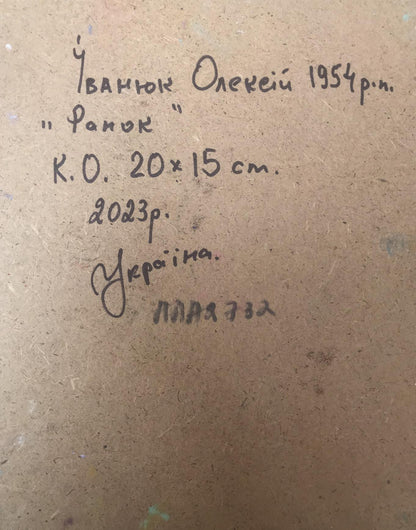 Іванюк Олексій 1954 р.н.
„Ранок"
К.О. 20×15 cm.
2023р.
Україна.